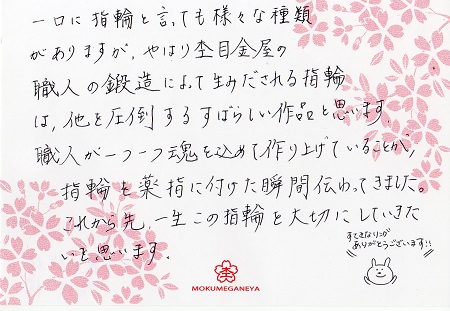 一口に指輪と言っても様々な種類
がありますが、やはり杢目金屋の
職人の鍛造によって生みだされる指輪
は、他を圧倒するすばらしい作品と思います。
職人が一つ一つ魂を込めて作り上げていることが、
指輪を薬指に付けた瞬間伝わってきました。
これから先、一生この指輪を大切にしていきた
いと思います。
すてきなリング
ありがとうございます!!
MOKUMEGANEYA